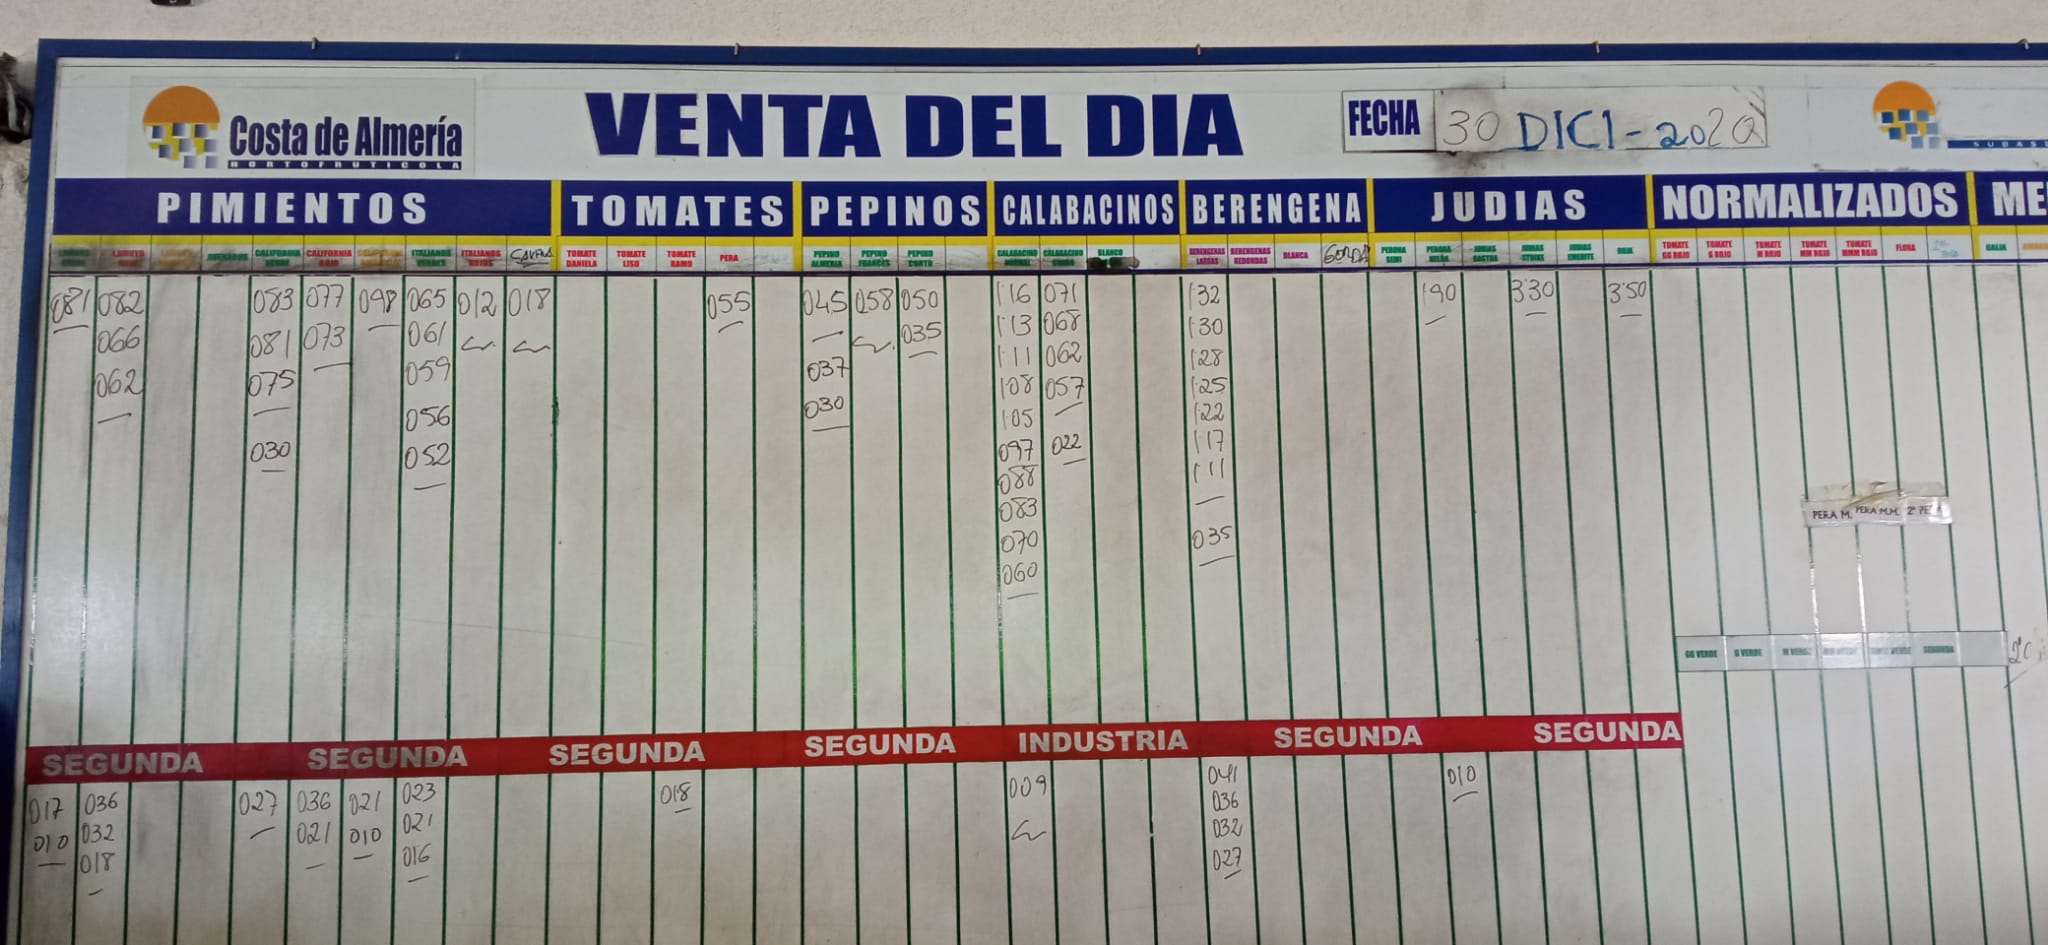 Costa de Almería
HORTOFRUTICOLA
VENTA DEL DIA
FECHA 30 DICI-2020
PIMIENTOS TOMATES PEPINOS CALABACINOS BERENGENA JUDIAS NORMALIZADOS ME
LAMUYO ROJO CALIFORNIA VERDE CALIFORNIA ROJO ITALIANOS VERDES ITALIANOS ROJOS TOMATE DANIELA TOMATE LISO TOMATE RAMO PERA PEPINO ALMERIA PEPINO FRANCES PEPINO CORTO CALABACINO CALABACINO GORDO BLANCO BERENGENAS LARGAS BERENGENAS REDONDAS BLANCA GORDA PERONA SEMI PERONA JUDIAS JUDIAS STRIKE JUDIAS EMERITE ROJA TOMATE GG ROJO TOMATE G ROJO TOMATE M ROJO TOMATE MM ROJO TOMATE MMM ROJO FLORA GALIA
081 082 083 077 098 065 012 018 055 045 058 050 1'16 071 1'32 1'90 3'30 3'50
066 081 073 061 035 1'13 068 1'30
062 075 059 037 1'11 062 1'28
056 030 1'08 057 1'25
030 052 1'05 1'22
097 022 1'17
088 1'11
083
070 035
060
PERA M. PERA M.M.
GG VERDE G VERDE M VERDE SEGUNDA
SEGUNDA SEGUNDA SEGUNDA SEGUNDA INDUSTRIA SEGUNDA SEGUNDA
017 036 027 036 021 023 018 009 041 010
010 032 021 010 021 036
018 016 032
027